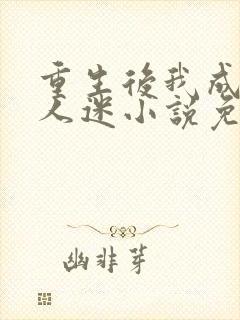 重生後我成
人迷小說免
幽非芽